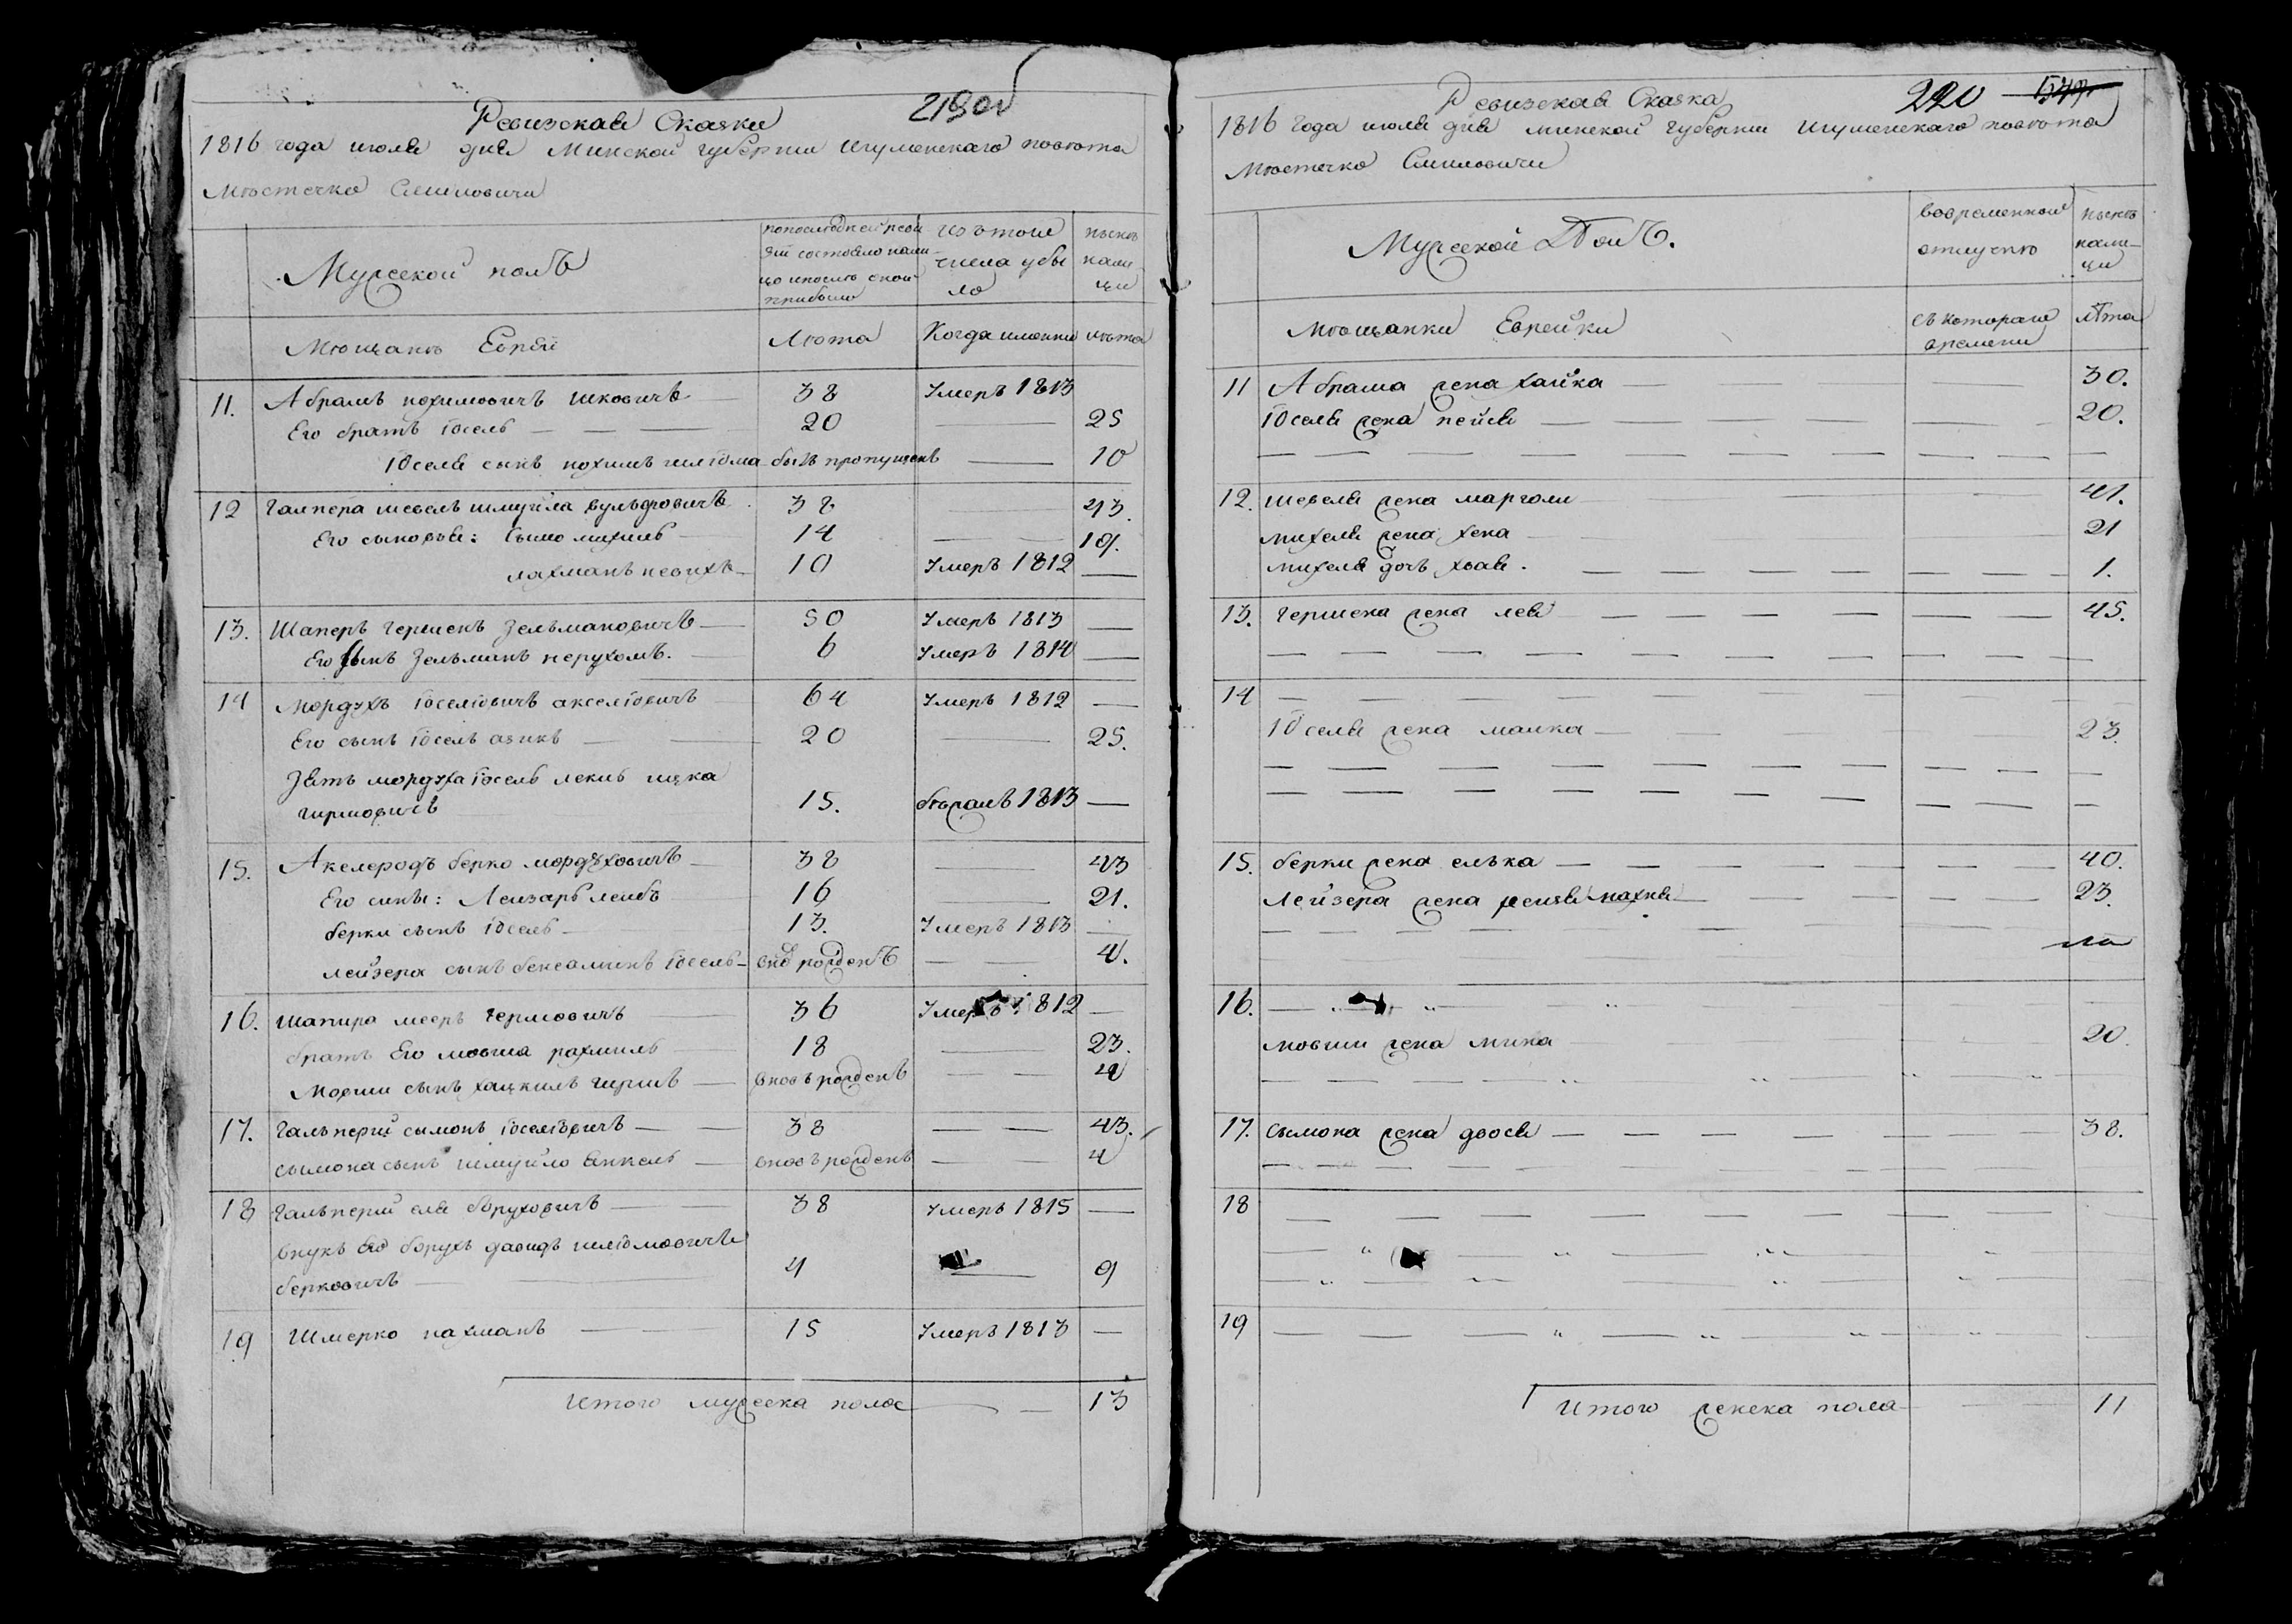 Ревизская Сказка
1816 года июля дня Минской губернии Игуменскаго повѣта
Мѣстечка Смиловичи
Мужеской полъ
попослѣдней реви
зіи состояло нали-
цо и послѣ оной
прибыло
изъ того
числа убы
ло
нынѣ
нали
цы
Мѣщанѣ Еврей
Лѣта
Когда именно
лѣта
11. Абрамъ нохимовичъ ицковичъ — 38 Умеръ 1813
Его братъ іосель — — — 20 — 25
Юселя сынъ нохимъ шліома былъ пропущенъ — 10
12 Галпера шевель шмуйла вульфовичъ 38 43.
Его сыновья: Сымо михель — 14 — 19.
лахманъ певихъ — 10 Умеръ 1812 —
13. Шаперъ гершенъ Зельмановичъ — 50 Умеръ 1813 —
Его сынъ Зельманъ нерухомъ. — 6 Умеръ 1814 —
14 Мордухъ іоселіовичъ акселіовичъ 64 Умеръ 1812 —
Его сынъ іосель азикъ — 20 — 25.
Зять мордуха іосель лекиб ицка
гиршовичъ 15. бѣжалъ 1813 —
15. Акселеродъ берко мордуховичъ — 38 — 43
Его сины: Леизаръ лейбъ 16 — 21.
берки сынъ іосель — 13. Умеръ 1813 —
лейзера сынъ бенеаминъ іосель — внѡ рожденъ — — 4.
16. Шапира мееръ гершовичъ — 36 Умеръ 1812 —
братъ Его мовша рахмиль — 18 — 23.
Мовши сынъ хацкиль гиршъ — вновъ рожденъ — — 4
17. Гальперий сымонъ іоселіовичъ — — 38 — — 43.
сымона сынъ шмуйло янкель — вновъ рожденъ — — 4
18 Гальперин еля боруховичъ — — 38 Умеръ 1815 —
Внукъ Его борухъ давидъ шліомовичъ
берковичъ — 4 — 9
19 Шмерко нахманъ — — 15 Умеръ 1813 —
Итого мужеска пола — — 13
Ревизская Сказка
220 549
1816 года июля дня минской губернии Игуменскаго повѣта
Мѣстечка Смиловичи
Мужеской Полъ.
вовременной
отлучкѣ
нынѣ
нали-
цы
мѣщанки Еврейки
съ котораго
времени
лѣта
11 Абрама жена хайка — — 30.
Юселя жена пейся — — — — 20.
12. шевеля жена марголи 41.
михеля жена хена — 21
михеля дочъ хвая. — — — — 1.
13. гершена жена лея — — — — 45.
14 — — — —
Юселя жена малка — — — 23.
15. берки жена елька — — — — 40.
Лейзера жена махня — — — 23.
16. — — —
мовши жена мина 20.
17. сымона жена двося — — — — 38.
18 — — — —
19 — — —
Итого женска пола — 11